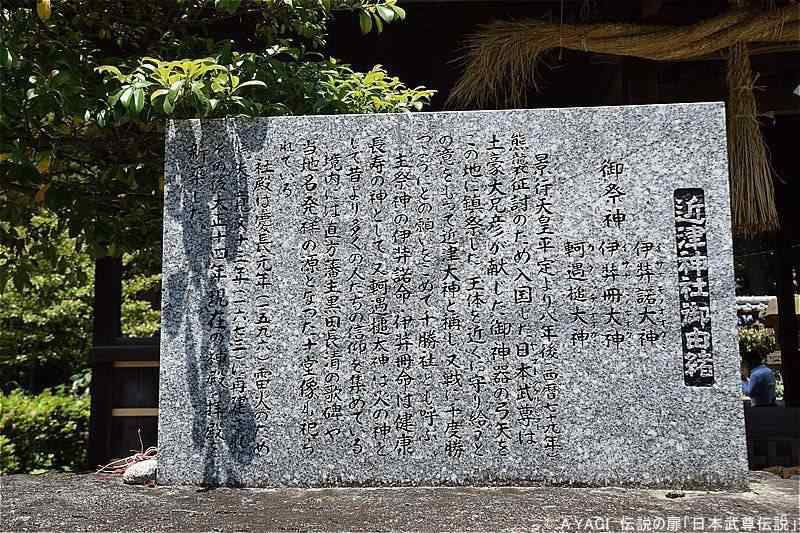 近津神社御由緒
伊弉諾大神
御祭神 伊弉冊大神
軻遇槌大神
景行天皇平定より八年後西暦七九年
熊襲征討のため入国した日本武尊は
土豪大兄彦が献じた御神器の弓矢を
この地に鎮祭した 玉体を近くに守り給うと
の意をもって近津大神と称し又戦に十度勝
つ との願いをこめて十勝社とも呼ぶ
主祭神の伊弉諾命 伊弉冊命は健康
長寿の神として又軻遇槌大神は火の神と
して昔より多くの人たちの信仰を集めている
境内には直方藩主黒田長清の歌碑や
当地名発祥の源となった 堂像も祀ら
れている
社殿は慶長元年(一五九六)雷火のため
年(一六七二)に再建
その後大正十四年現在の神殿 拝殿
した
© AYAGI 伝説の扉「日本武尊伝説」